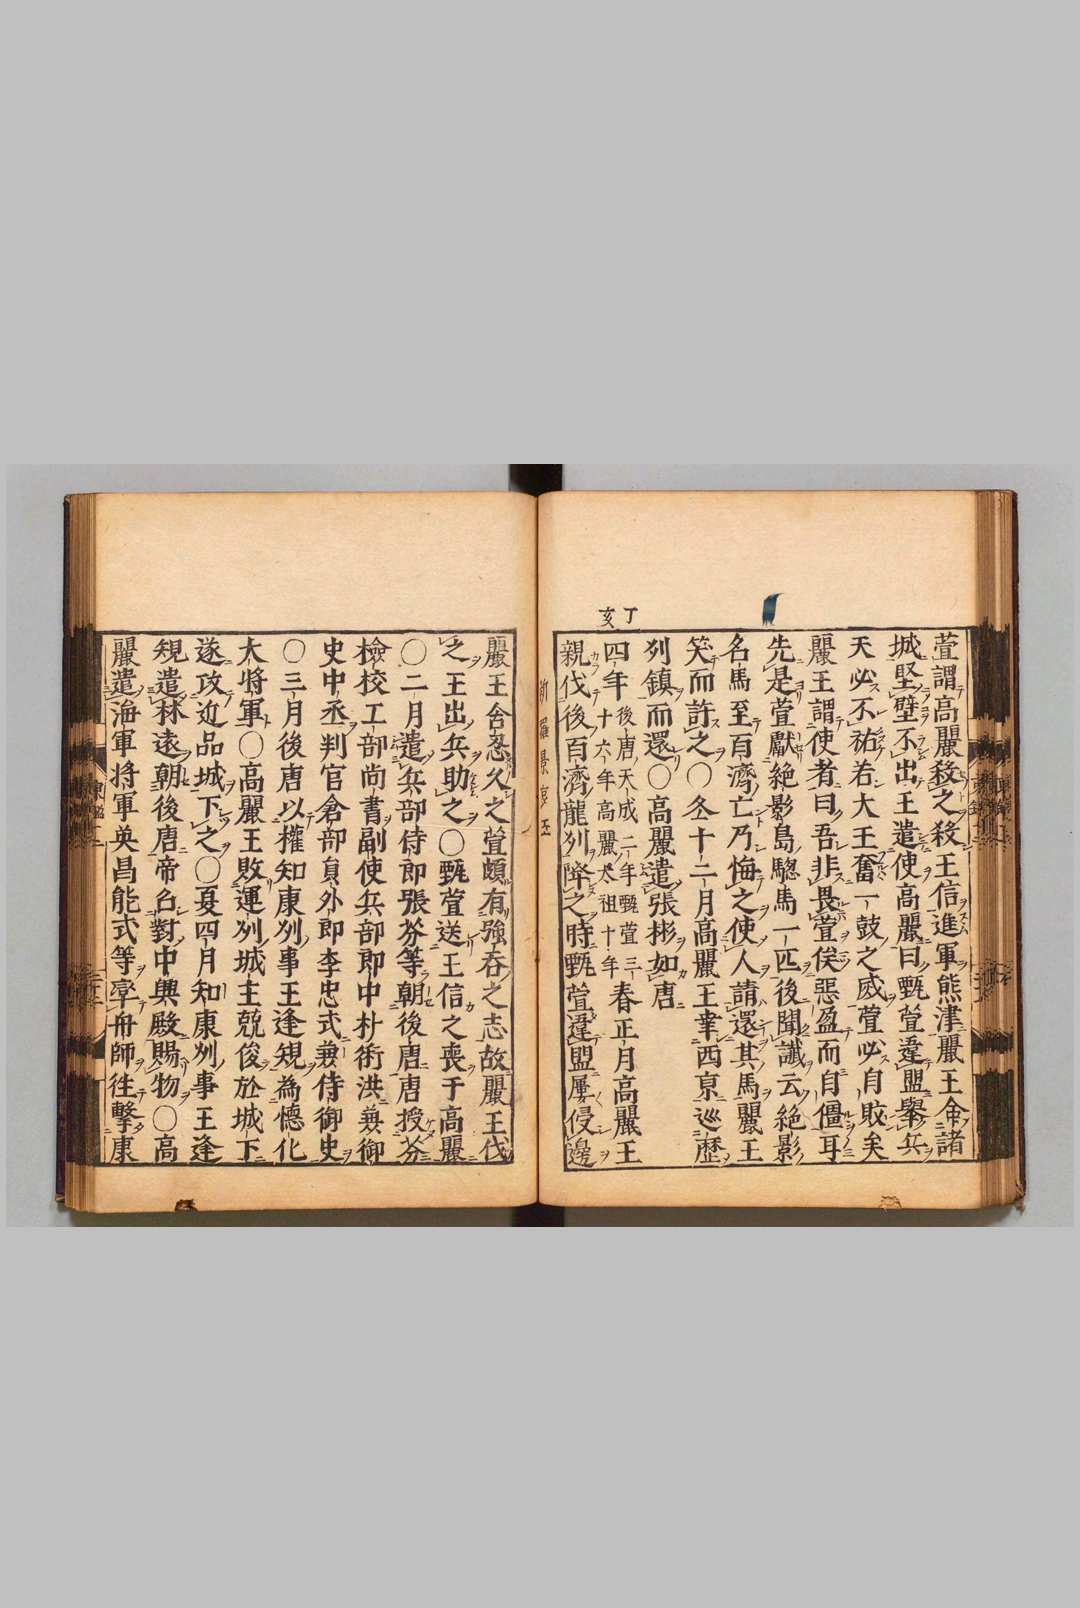 萱謂高麗殺之殺王信進軍熊津麗王命諸
城堅壁不出王遣使高麗曰甄萱違盟舉兵
天必不祐若大王奮一鼓之威萱必自敗矣
麗王謂使者曰吾非畏萱俟惡盈而自僵耳
先是萱獻絕影島驄馬一匹後聞讖云絕影
名馬至百濟亡乃悔之使人請還其馬麗王
笑而許之〇冬十二月高麗王幸西京巡歷
列鎮而還〇高麗遣張彬如唐
丁亥
四年後唐天成二年甄萱三十六年高麗太祖十年春正月高麗王
親伐後百濟龍州降之時甄萱違盟屢侵邊
新羅景哀王
麗王含忍久之萱頗有強吞之志故麗王伐
之王出兵助之〇甄萱送王信之喪于高麗
〇二月遣兵部侍郎張芬等朝後唐唐授芬
檢校工部尚書副使兵部郎中朴術洪兼御
史中丞判官倉部員外郎李忠式兼侍御史
〇三月後唐以權知康州事王逢規為懷化
大將軍〇高麗王敗運州城主兢俊於城下
遂攻近品城下之〇夏四月知康州事王逢
規遣林遠朝後唐帝召對中興殿賜物〇高
麗遣海軍將軍英昌能式等率舟師往擊康